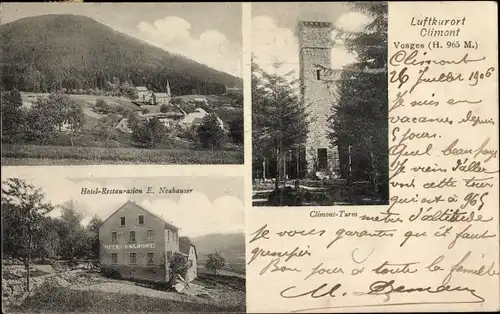 Luftkurort
Climont
Vosges (H. 965 M.)
Climont
26 Juillet 1906
Je suis en
vacances depuis
5 jours.
Quel beau pays
Je viens d'aller
voir cette tour
qui est à 965
metres d'altitude
Je vous garantis qu'il faut
grimper
Bon jour à toute la famille
M.
Hotel-Restauration E. Neuhauser
HOTEL CLIMONT
Climont-Turm